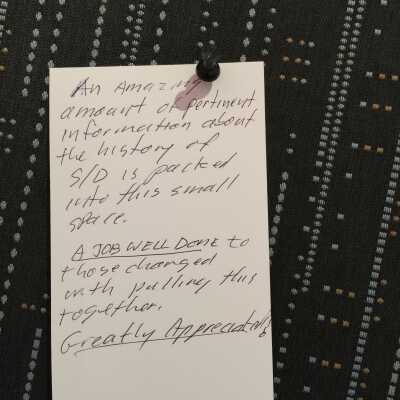 An Amazing
amount of pertinent
information about
the history of
S/D is packed
into this small
space.
A JOB WELL DONE to
those changed
with pulling this
together.
Greatly Appreciated!